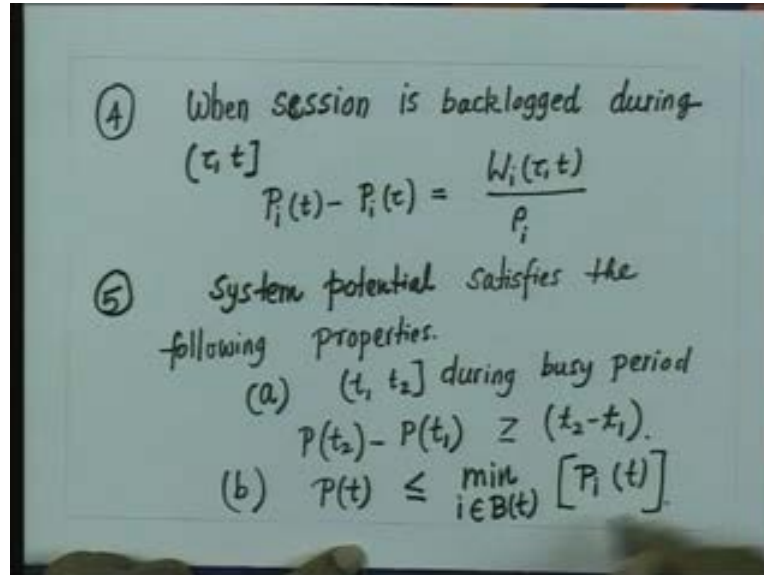 ④ When session is backlogged during
(τ, t]
P_i(t) - P_i(τ) = W_i(τ, t) / ρ_i
⑤ System potential satisfies the
following properties.
(a) (t_1 t_2] during busy period
P(t_2) - P(t_1) ≥ (t_2 - t_1).
(b) P(t) ≤ min_{i∈B(t)} [P_i(t)].